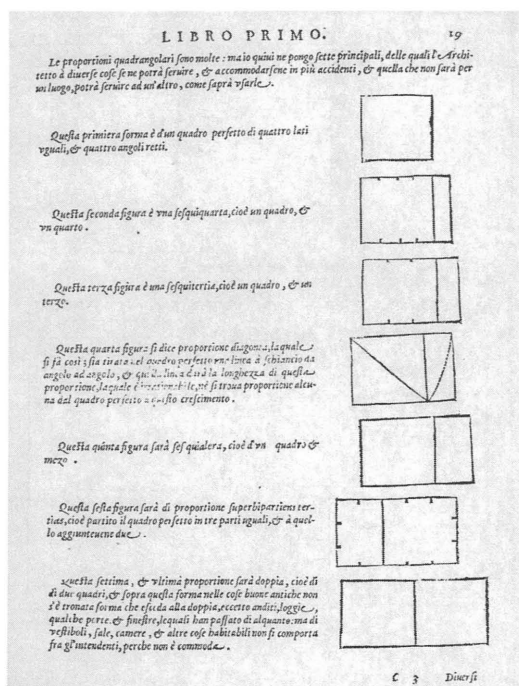 LIBRO PRIMO. 19
Le proportioni quadrangolari sono molte: ma io quiui ne pongo sette principali, delle quali l'Archi-
tetto à diuerse cose se ne potrà seruire, & accommodarsene in più accidenti, & quella che non sarà per
un luogo, potrà seruire ad un'altro, come saprà vsarle.
Questa primiera forma è d'un quadro perfetto di quattro lati
vguali, & quattro angoli retti.
Questa seconda figura è vna sesquiquarta, cioè un quadro, &
vn quarto.
Questa terza figura è una sesquitertia, cioè un quadro, & un
terzo.
Questa quarta figura si dice proportione diagonea, laquale
si fà così; sia tirata nel quadro perfetto vna linea à schiancio da
angolo ad angolo, & quella linea darà la longhezza di questa
proportione, laquale è irrationabile, nè si troua proportione alcu-
na dal quadro perfetto a questo crescimento.
Questa quinta figura sarà sesquialtera, cioè d'vn quadro &
mezo.
Questa sesta figura sarà di proportione superbipartiens ter-
tias, cioè partito il quadro perfetto in tre parti uguali, & à quel-
lo aggiunteuene due.
Questa settima, & vltima proportione sarà doppia, cioè di
di due quadri, & sopra questa forma nelle cose buone antiche non
s'è tronata forma che eceda alla doppia, eccetto anditi, loggie,
qualche porte. & finestre, lequali han passato di alquanto: ma di
vestiboli, sale, camere, & altre cose habitabili non si comporta
fra gl'intendenti, perche non è commoda.
C 3 Diuersi